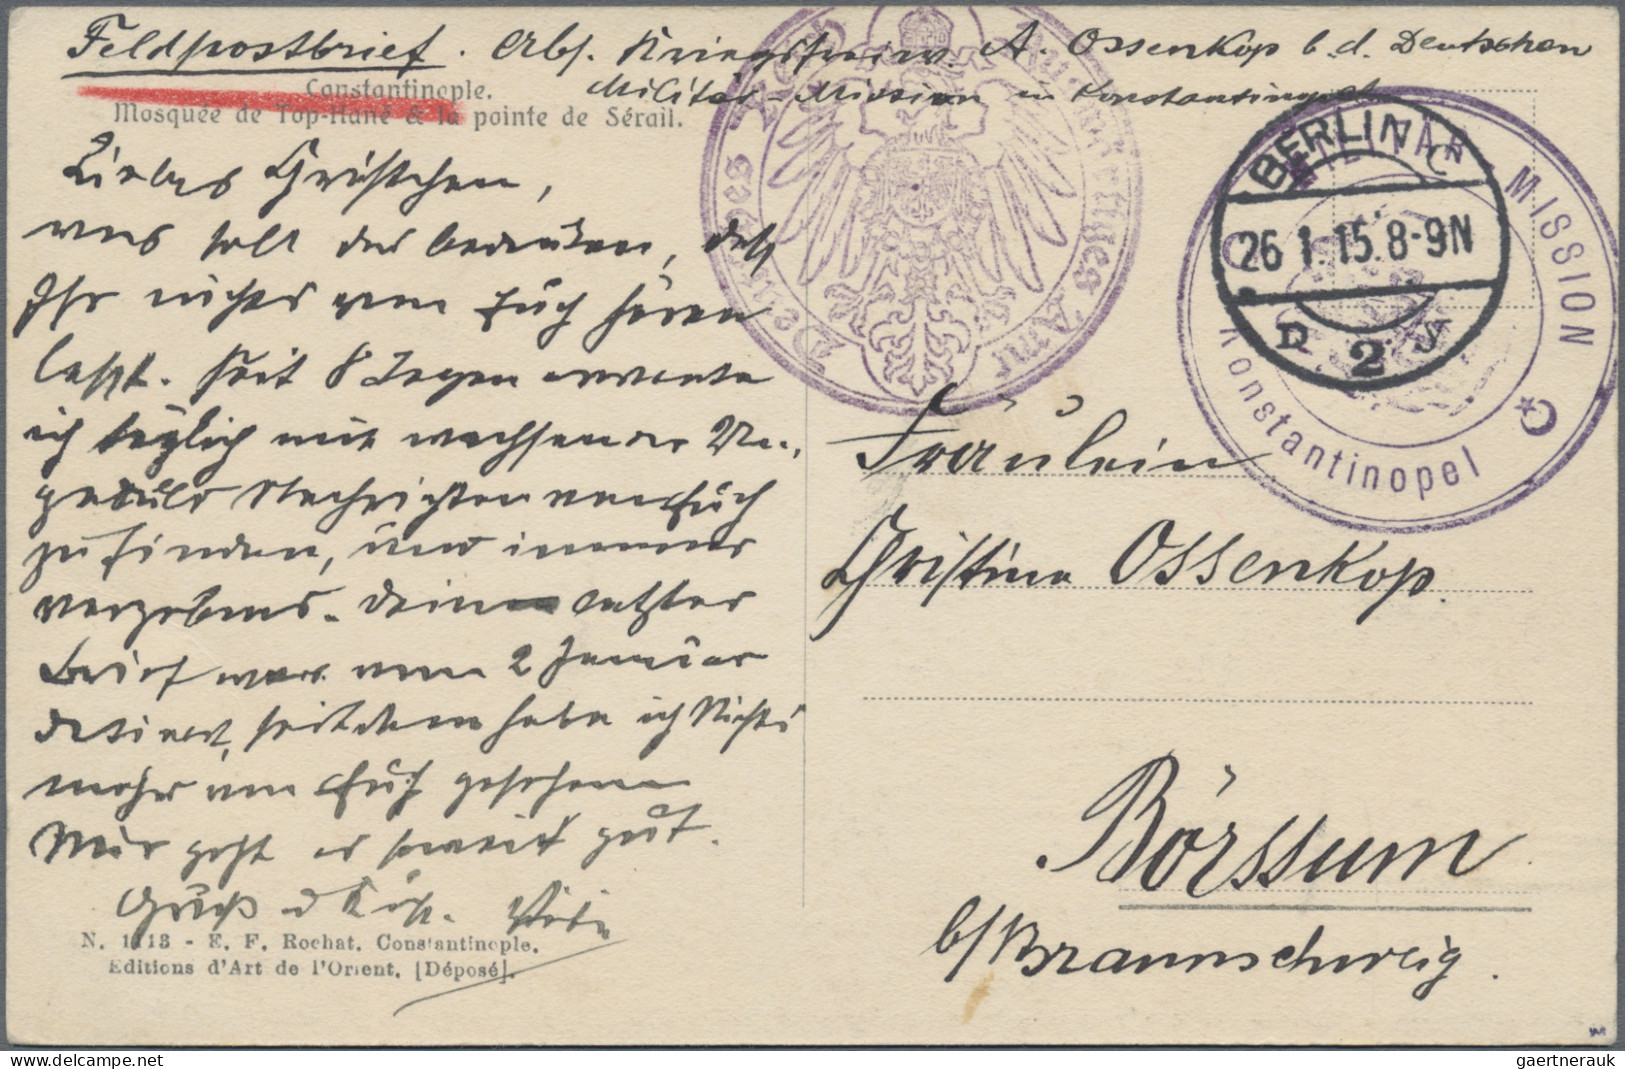 Feldpostbrief. Abs. Kriegsfreiw. A. Ossenkop b. d. Deutschen
Militär-Mission in Konstantinopel
Constantinople.
Mosquée de Top-Hané & la pointe de Sérail.
Liebes Christchen,
was soll das bedeuten, daß
Ihr nichts von Euch hören
laßt. Seit 8 Tagen erwarte
ich täglich mit wachsender Un-
geduld Nachrichten von Euch
zu finden, und immer
vergebens. Dein letzter
Brief war vom 2 Januar
datiert, seitdem habe ich Nichts
mehr von Euch gesehen
Mir geht es soweit gut.
Gruß u Kuß.
N. 1113 - E. F. Rochat, Constantinople.
Editions d'Art de l'Orient. [Déposé].
Deutsches Auswärtiges Amt
BERLIN C
26 1. 15. 8-9N
2
MILITÄR - MISSION
Konstantinopel
Fräulein
Christine Ossenkop.
Börssum
b/Braunschweig.
gaertnerauk @ delcampe.net